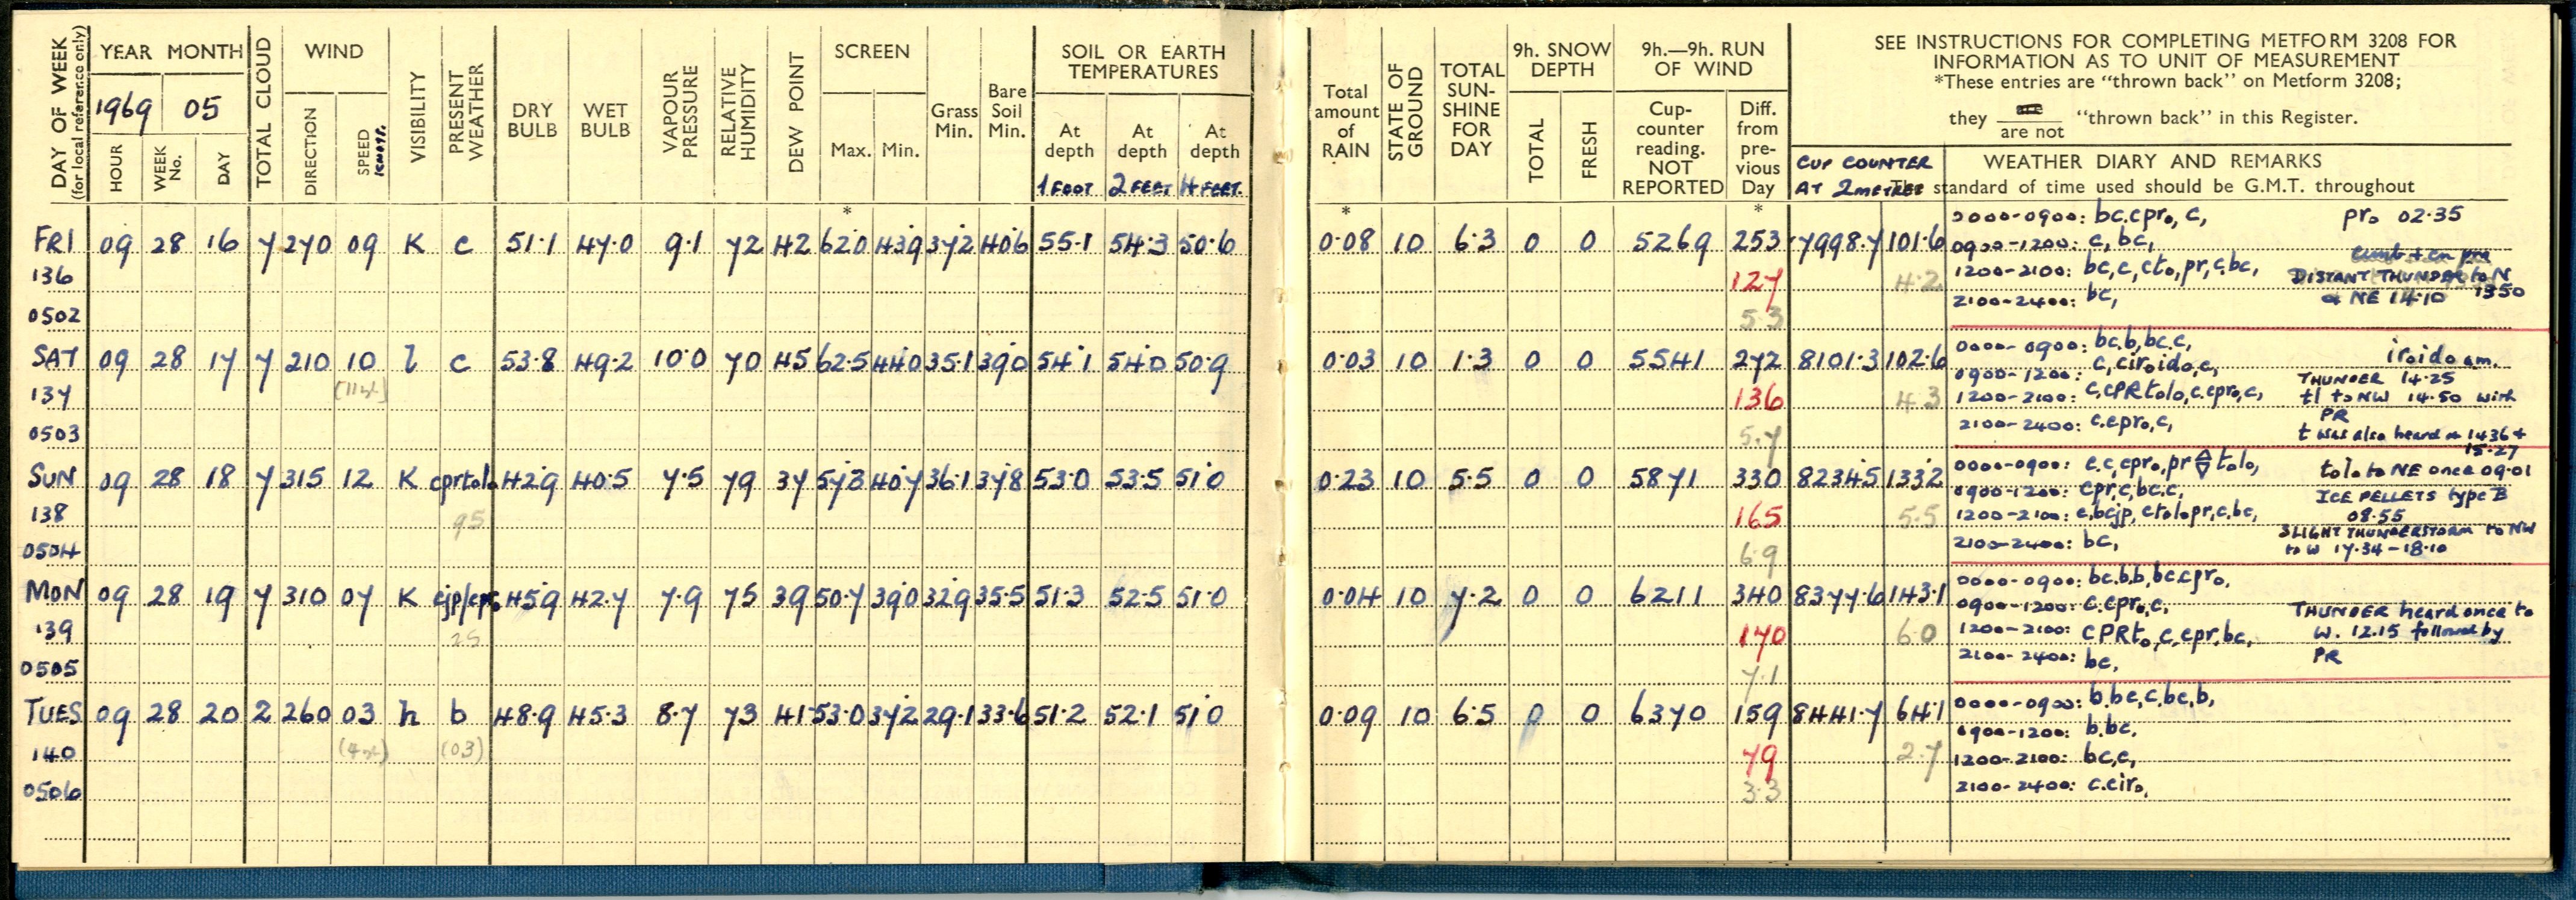 DAY OF WEEK (for local reference only) YEAR MONTH TOTAL CLOUD WIND VISIBILITY PRESENT WEATHER DRY BULB WET BULB VAPOUR PRESSURE RELATIVE HUMIDITY DEW POINT SCREEN Grass Min. Bare Soil Min. SOIL OR EARTH TEMPERATURES
1969 05
HOUR WEEK No. DAY DIRECTION SPEED KNOTS. Max. Min. At depth At depth At depth
1 FOOT 2 FEET 4 FEET.
Total amount of RAIN STATE OF GROUND TOTAL SUN-SHINE FOR DAY 9h. SNOW DEPTH 9h.—9h. RUN OF WIND
TOTAL FRESH Cup-counter reading. NOT REPORTED Diff. from pre-vious Day
SEE INSTRUCTIONS FOR COMPLETING METFORM 3208 FOR
INFORMATION AS TO UNIT OF MEASUREMENT
*These entries are "thrown back" on Metform 3208;
they are not "thrown back" in this Register.
CUP COUNTER AT 2 METRES
WEATHER DIARY AND REMARKS
The standard of time used should be G.M.T. throughout
* * *
FRI 09 28 16 7 270 09 K c 51·1 47·0 9·1 72 42 62·0 43·9 37·2 40·6 55·1 54·3 50·6 0·08 10 6·3 0 0 5269 253 7998·7 101·6
136 127 4·2
0502 5·3
0000-0900: bc.cpro, c, pro 02·35
0900-1200: c, bc,
1200-2100: bc, c, cto, pr, c, bc, DISTANT THUNDER to N
2100-2400: bc, & NE 14·10 1350
SAT 09 28 17 7 210 10 l c 53·8 49·2 10·0 70 45 62·5 44·0 35·1 39·0 54·1 54·0 50·9 0·03 10 1·3 0 0 5541 272 8101·3 102·6
137 136 4·3
0503 5·7
0000-0900: bc, b, bc, c, iroido am.
0900-1200: c, ciroido, c, THUNDER 14·25
1200-2100: c, cPRtolo, c. cpro, c, tl to NW 14·50 with PR
2100-2400: c. cpro, c, t was also heard at 1436 + 15·27
SUN 09 28 18 7 315 12 K cprtolo 42·9 40·5 7·5 79 37 57·3 40·7 36·1 37·8 53·0 53·5 51·0 0·23 10 5·5 0 0 5871 330 8234·5 133·2
138 95 165 5·5
0504 6·9
0000-0900: c. c, cpro, pr tolo, tolo to NE once 09·01
0900-1200: cpr, c, bc, c, ICE PELLETS type B 08·55
1200-2100: c, bcjp, ctolopr, c, bc, SLIGHT THUNDERSTORM to NW
2100-2400: bc, to W 17·34-18·10
MON 09 28 19 7 310 07 K cjp/cpro 45·9 42·7 7·9 75 39 50·7 39·0 32·9 35·5 51·3 52·5 51·0 0·04 10 7·2 0 0 6211 340 8377·6 143·1
139 25 170 6·0
0505 7·1
0000-0900: bc. b, b, bc. cpro,
0900-1200: c. cpro, c, THUNDER heard once to
1200-2100: cPRto, c, cpr, bc, W. 12.15 followed by
2100-2400: bc, PR
TUES 09 28 20 2 260 03 h b 48·9 45·3 8·7 73 41 53·0 37·2 29·1 33·6 51·2 52·1 51·0 0·09 10 6·5 0 0 6370 159 8441·7 64·1
140 (03) 79 2·7
0506 3·3
0000-0900: b. bc, c, bc, b,
0900-1200: b. bc,
1200-2100: bc, c,
2100-2400: c. ciro,